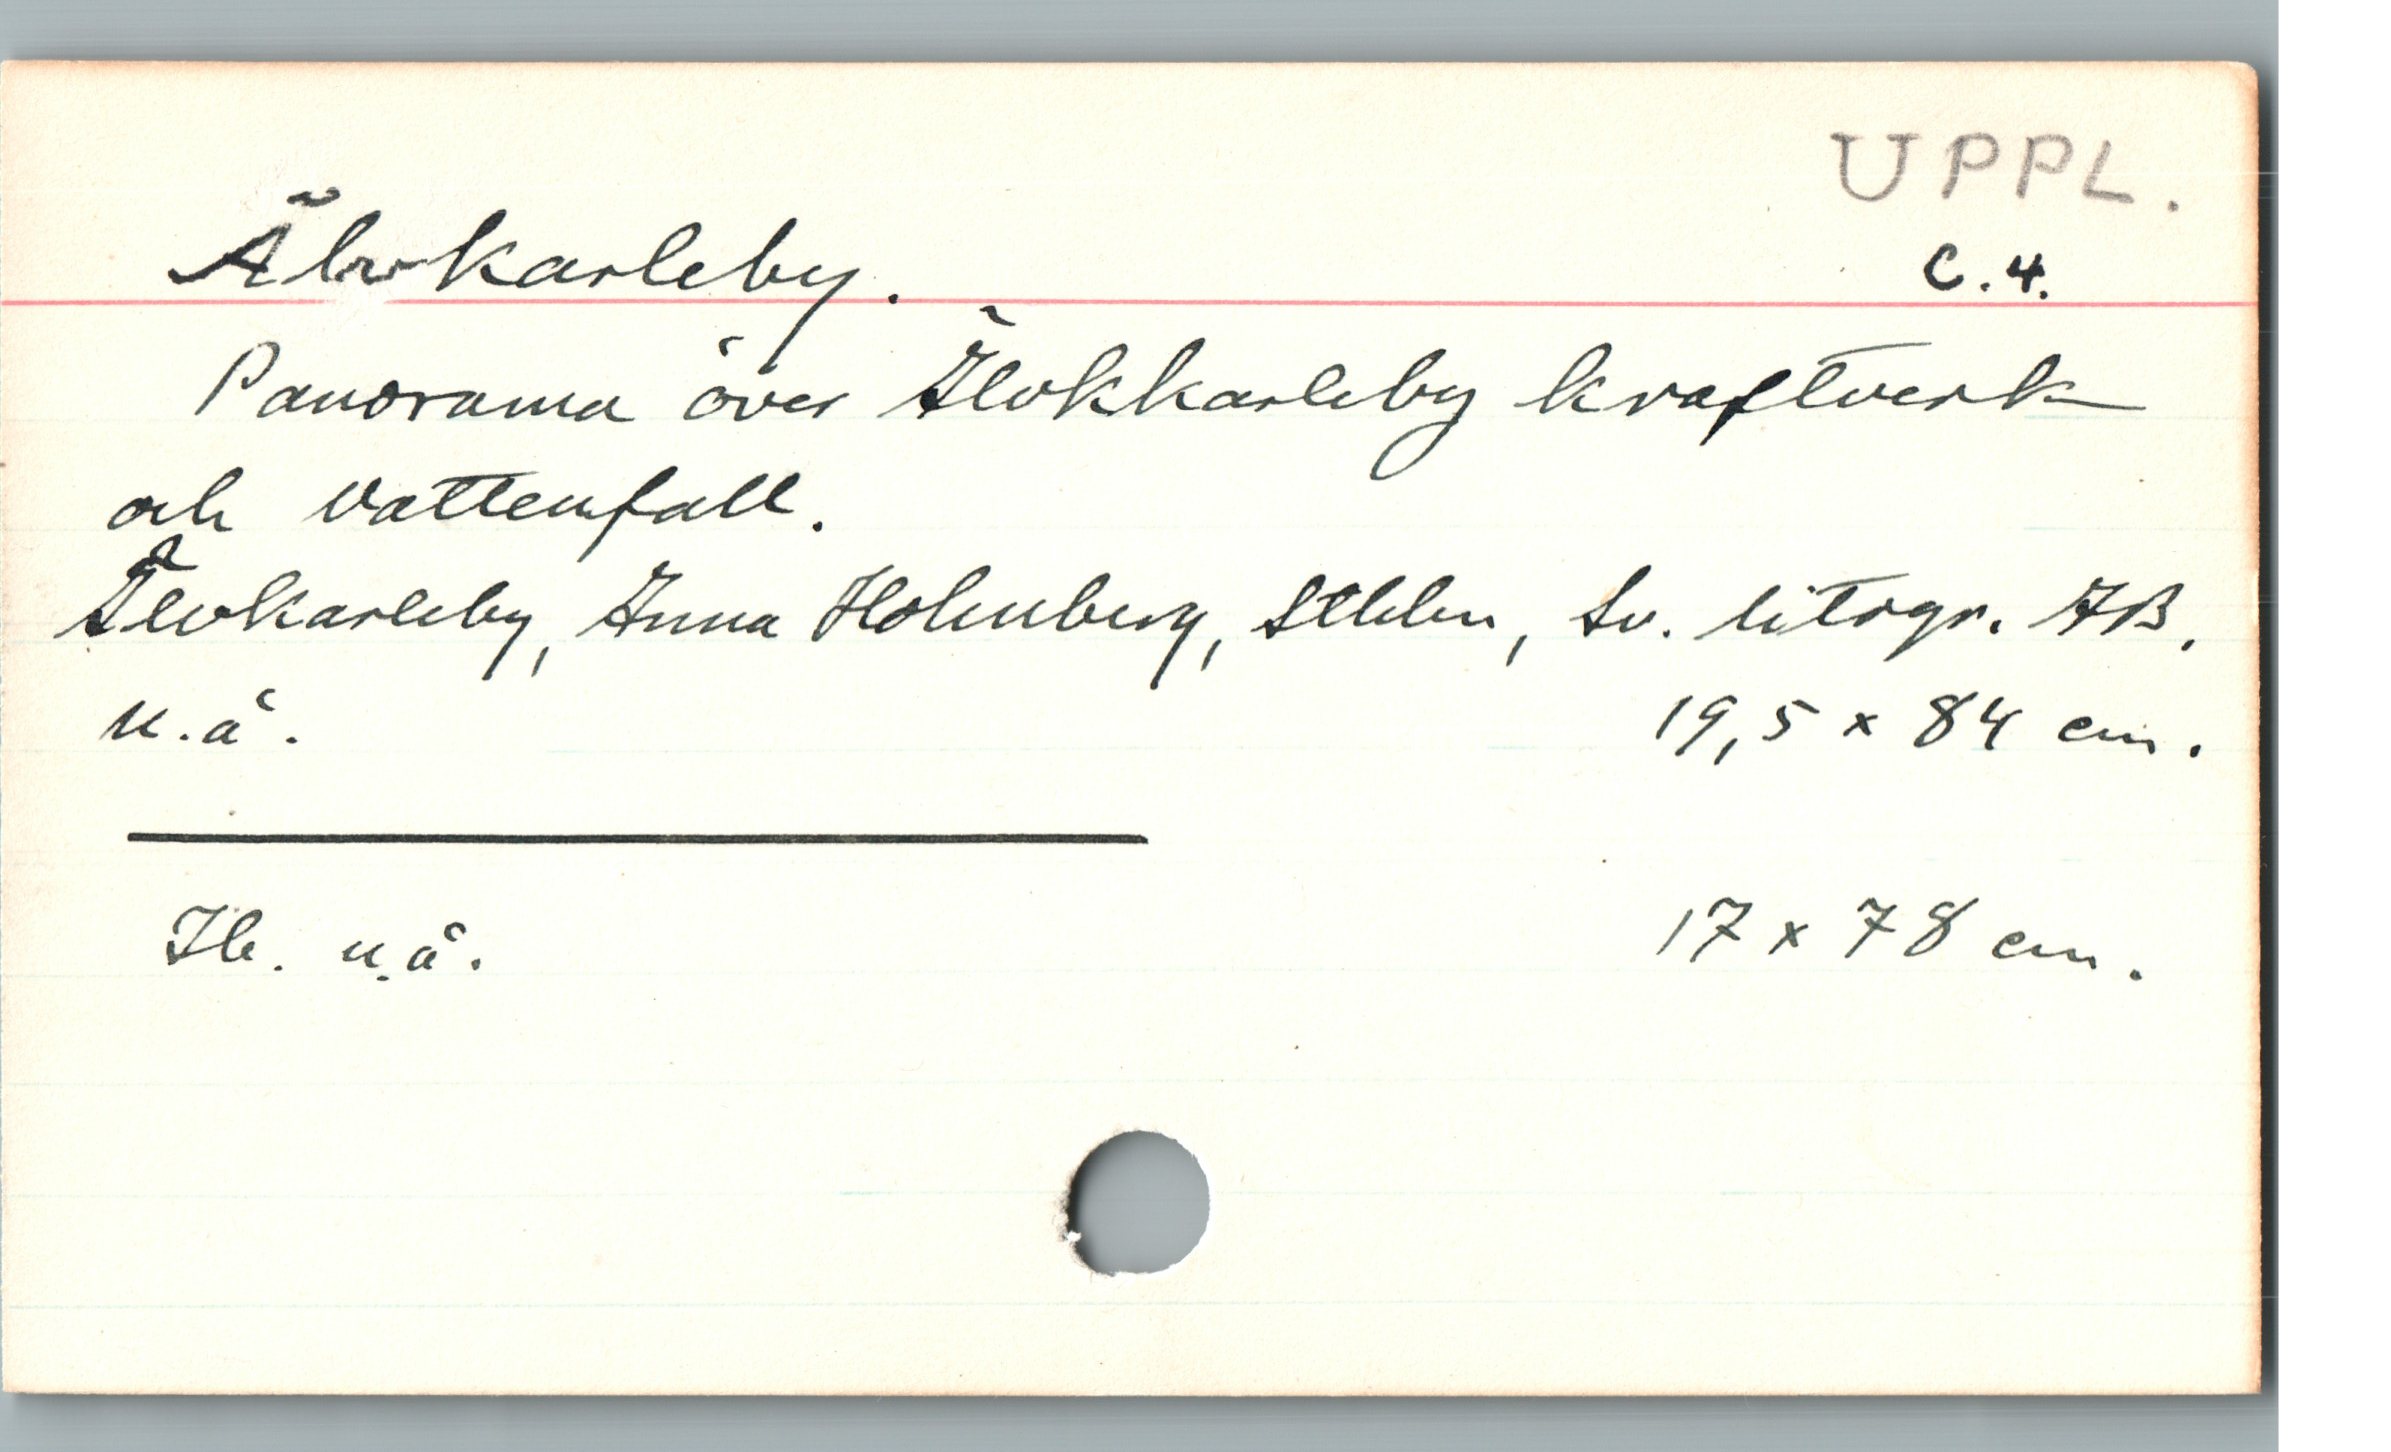 UPPL.
Älvkarleby.
C.4.
Panorama över Älvkkarleby kraftverk
och vattenfall.
Älvkarleby, Anna Holmberg, Sthlm, Sv. litogr. AB.
u.å.
19,5 x 84 cm.
Ib. u.å.
17 x 78 cm.